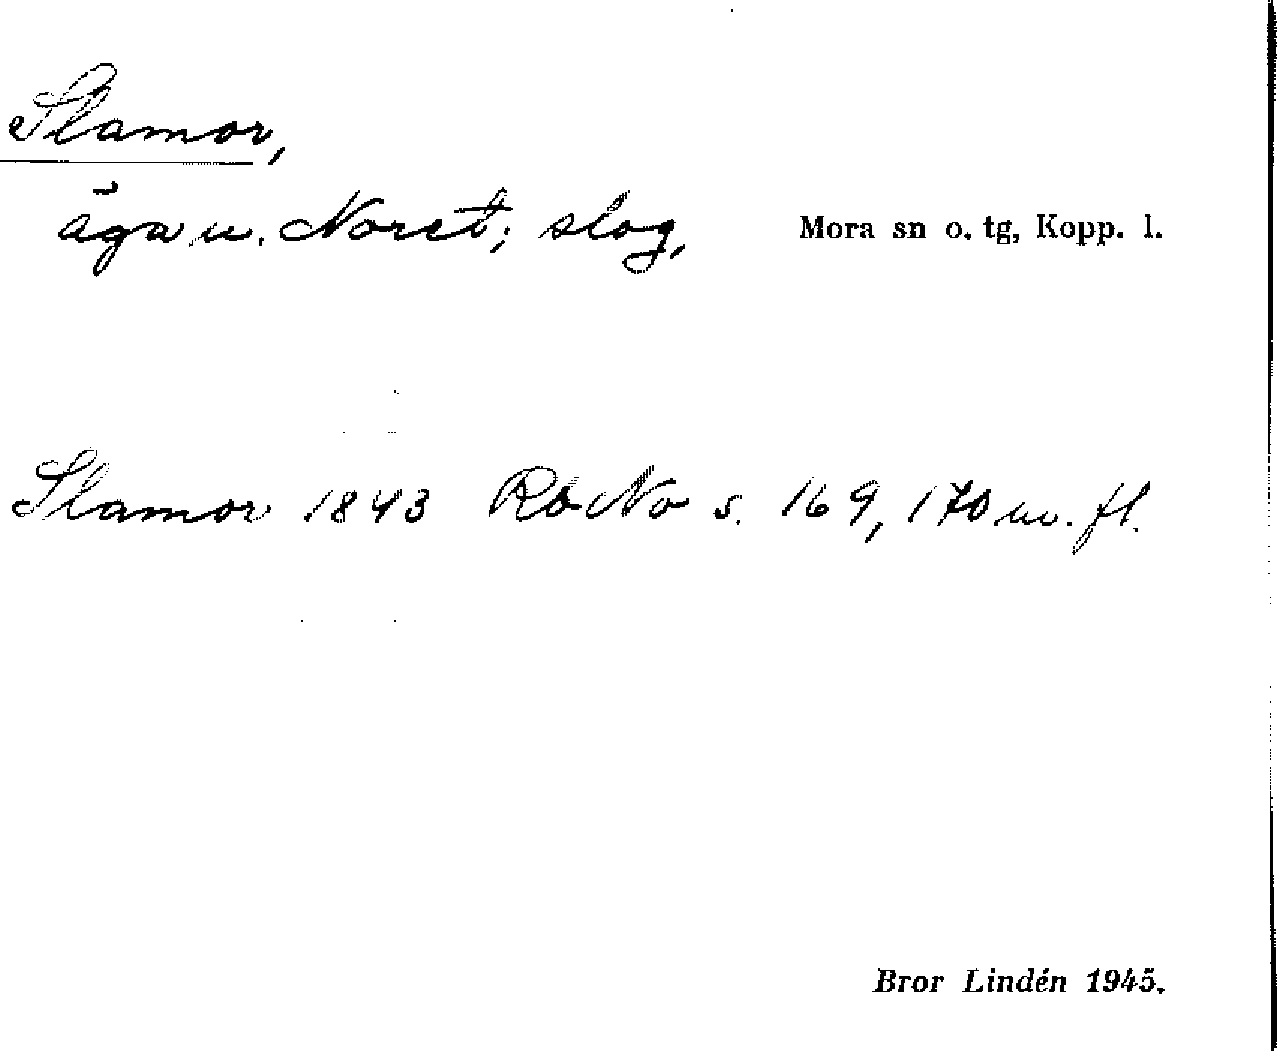 Slamor,
äga u. Noret; slog,
Mora sn o. tg, Kopp. l.
Slamor 1843 RoNo s. 169, 170 m. fl.
Bror Lindén 1945.